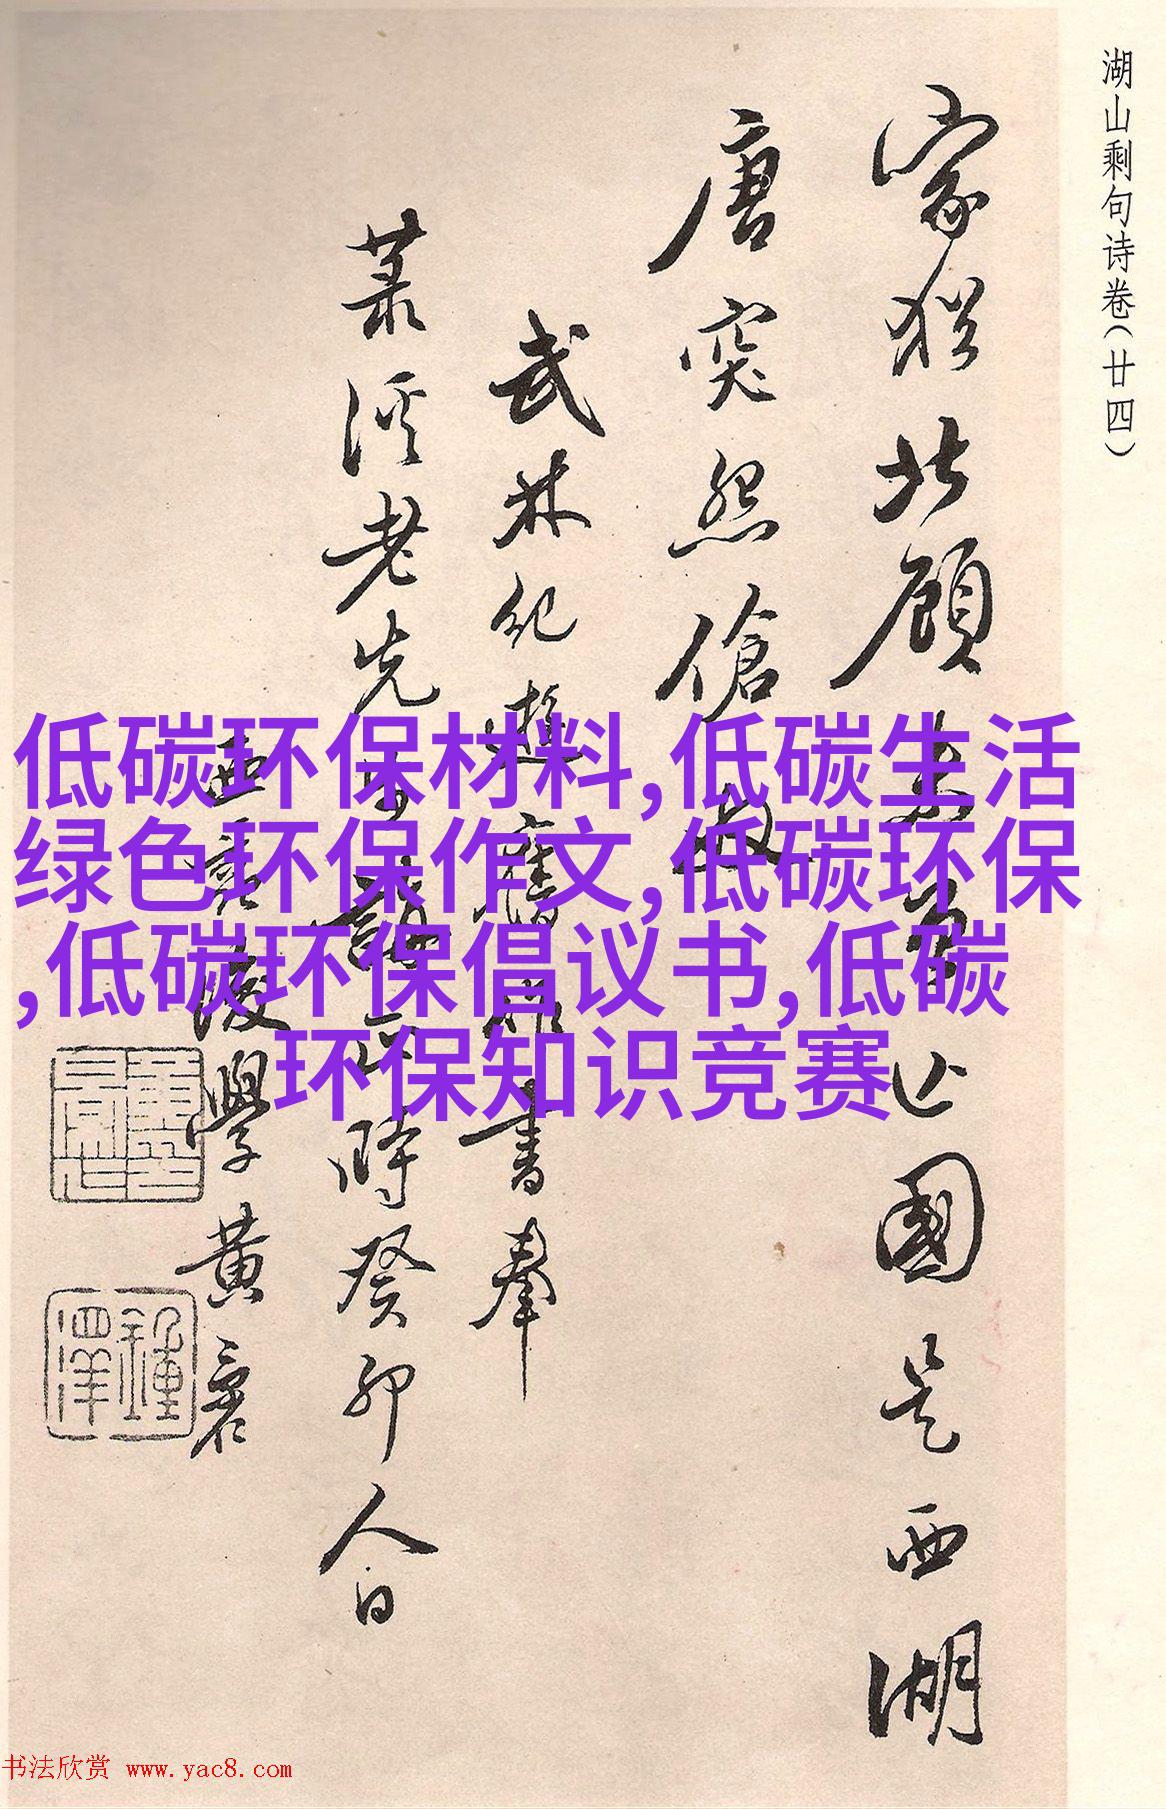 湖山剩句诗卷(廿四)
北顧 國是西湖
唐突怨傖父
武林紀遊舊作書奉
溪老先生 正時癸卯人日
後學黄
低碳环保材料,低碳生活
绿色环保作文,低碳环保
,低碳环保倡议书,低碳
环保知识竞赛
书法欣赏 www.yac8.com